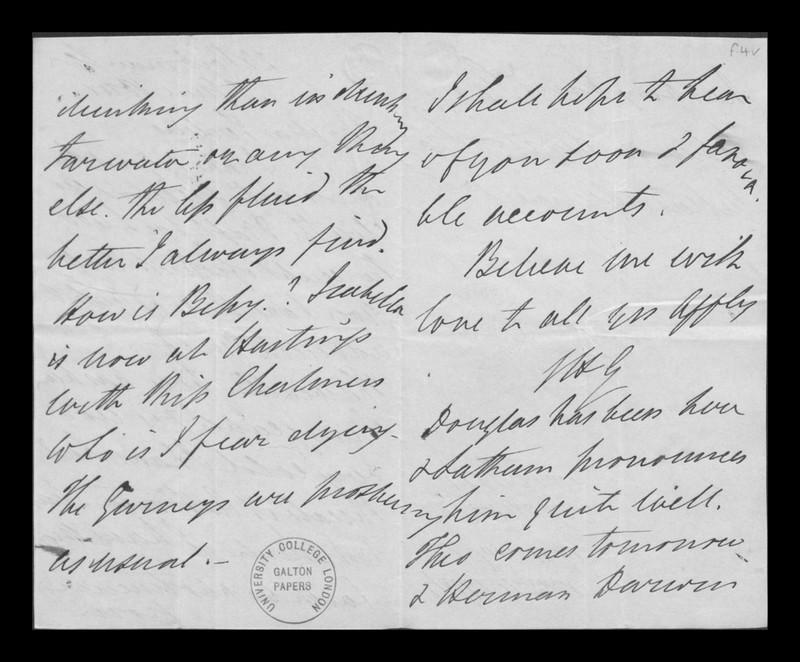 f4v
drinking than in drinking
tarwater or any thing
else. the less fluid the
better I always find.
How is Bessy? Isabella
is now at Hastings
with Miss Chalmers
who is I fear dying -
The Gurneys are prospering
as usual. -
UNIVERSITY COLLEGE LONDON
GALTON
PAPERS
I shall hope to hear
of you soon & favora
ble accounts.
Believe me with
love to all yrs affly
Douglas has been here
& Latham pronounces
him quite well.
Theo comes tomorrow
& Herman Darwin